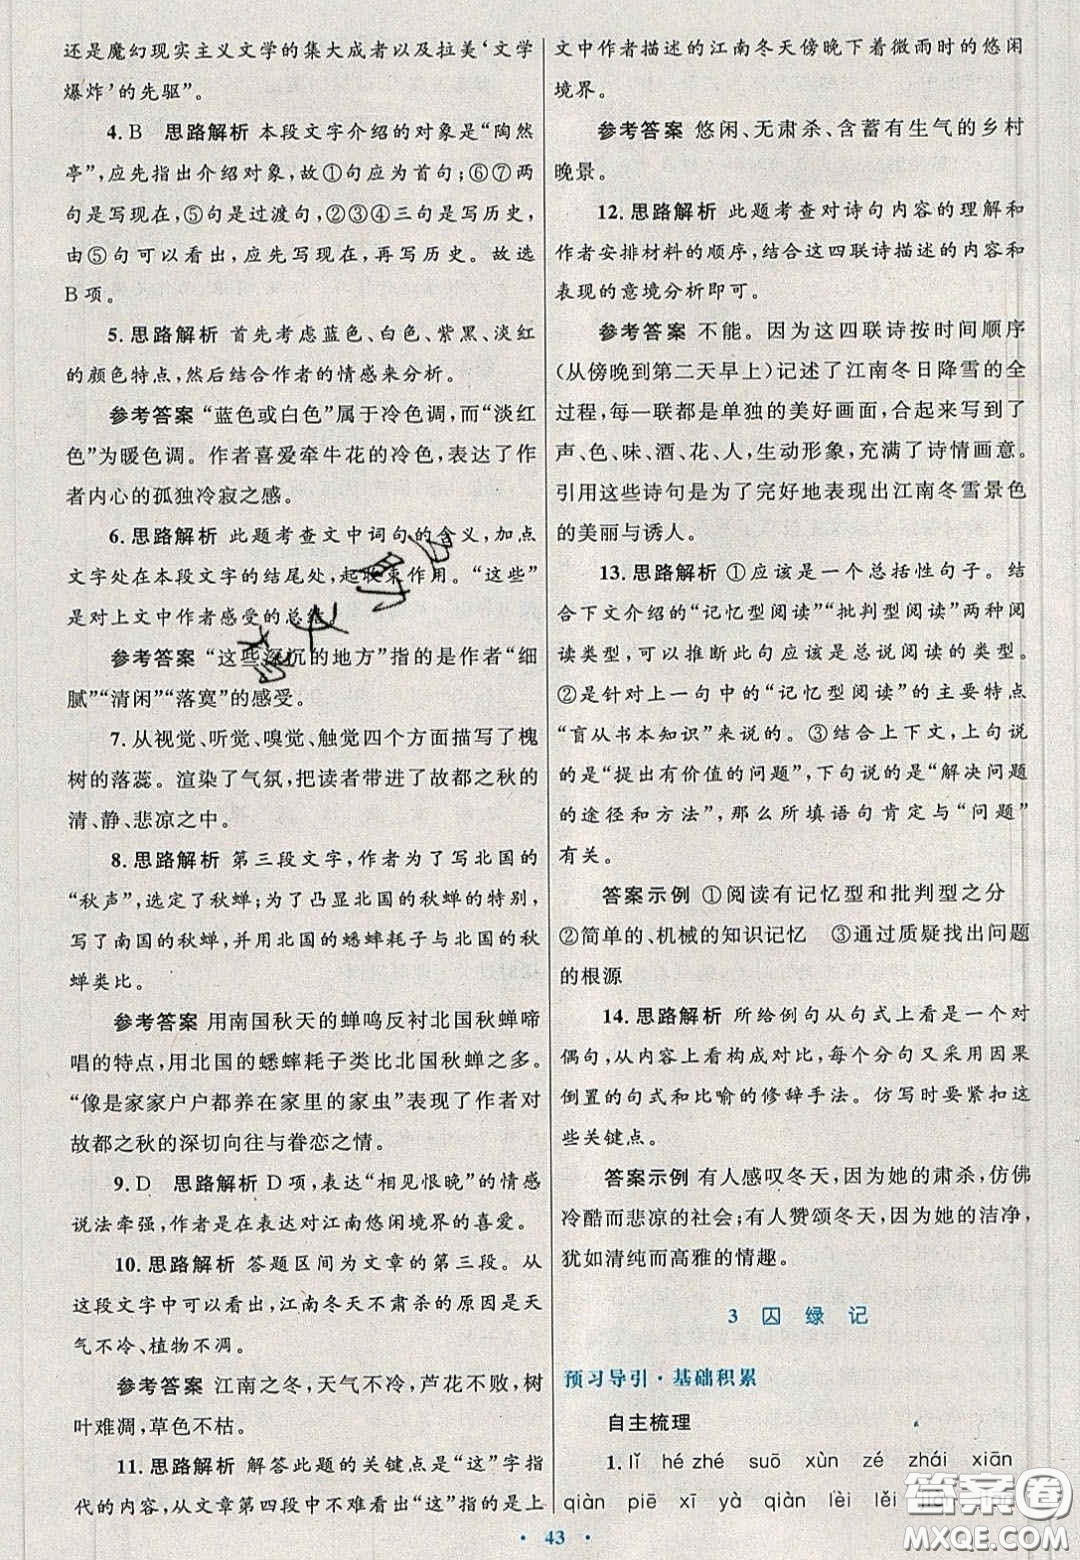 还是魔幻现实主义文学的集大成者以及拉美‘文学
爆炸’的先驱”。
4. B 思路解析 本段文字介绍的对象是“陶然
亭”,应先指出介绍对象,故①句应为首句;⑥⑦两
句是写现在,⑤句是过渡句,②③④三句是写历史,
由⑤句可以看出,应先写现在,再写历史。故选
B项。
5. 思路解析 首先考虑蓝色、白色、紫黑、淡红
的颜色特点,然后结合作者的情感来分析。
参考答案 “蓝色或白色”属于冷色调,而“淡红
色”为暖色调。作者喜爱牵牛花的冷色,表达了作
者内心的孤独冷寂之感。
6. 思路解析 此题考查文中词句的含义,加点
文字处在本段文字的结尾处,起收束作用。“这些”
是对上文中作者感受的总结。
参考答案 “这些深沉的地方”指的是作者“细
腻”“清闲”“落寞”的感受。
7. 从视觉、听觉、嗅觉、触觉四个方面描写了槐
树的落蕊。渲染了气氛,把读者带进了故都之秋的
清、静、悲凉之中。
8. 思路解析 第三段文字,作者为了写北国的
“秋声”,选定了秋蝉;为了凸显北国的秋蝉的特别,
写了南国的秋蝉,并用北国的蟋蟀耗子与北国的秋
蝉类比。
参考答案 用南国秋天的蝉鸣反衬北国秋蝉啼
唱的特点,用北国的蟋蟀耗子类比北国秋蝉之多。
“像是家家户户都养在家里的家虫”表现了作者对
故都之秋的深切向往与眷恋之情。
9. D 思路解析 D项,表达“相见恨晚”的情感
说法牵强,作者是在表达对江南悠闲境界的喜爱。
10. 思路解析 答题区间为文章的第三段。从
这段文字中可以看出,江南冬天不肃杀的原因是天
气不冷、植物不凋。
参考答案 江南之冬,天气不冷,芦花不败,树
叶难凋,草色不枯。
11. 思路解析 解答此题的关键点是“这”字指
代的内容,从文章第四段中不难看出“这”指的是上
文中作者描述的江南冬天傍晚下着微雨时的悠闲
境界。
参考答案 悠闲、无肃杀、含蓄有生气的乡村
晚景。
12. 思路解析 此题考查对诗句内容的理解和
作者安排材料的顺序,结合这四联诗描述的内容和
表现的意境分析即可。
参考答案 不能。因为这四联诗按时间顺序
(从傍晚到第二天早上)记述了江南冬日降雪的全
过程,每一联都是单独的美好画面,合起来写到了
声、色、味、酒、花、人,生动形象,充满了诗情画意。
引用这些诗句是为了完好地表现出江南冬雪景色
的美丽与诱人。
13. 思路解析 ①应该是一个总括性句子。结
合下文介绍的“记忆型阅读”“批判型阅读”两种阅
读类型,可以推断此句应该是总说阅读的类型。
②是针对上一句中的“记忆型阅读”的主要特点
“盲从书本知识”来说的。③结合上下文,上句说
的是“提出有价值的问题”,下句说的是“解决问题
的途径和方法”,那么所填语句肯定与“问题”
有关。
答案示例 ①阅读有记忆型和批判型之分
②简单的、机械的知识记忆 ③通过质疑找出问题
的根源
14. 思路解析 所给例句从句式上看是一个对
偶句,从内容上看构成对比,每个分句又采用因果
倒置的句式和比喻的修辞手法。仿写时要紧扣这
些关键点。
答案示例 有人感叹冬天,因为她的肃杀,仿佛
冷酷而悲凉的社会;有人赞颂冬天,因为她的洁净,
犹如清纯而高雅的情趣。
3 囚绿记
预习导引·基础积累
自主梳理
1. lǐ hé zhé suō xùn zé zhái xiān
qiàn piē xī yà qiàn lèi lěi
答案圈
MXQE.COM
· 43 ·